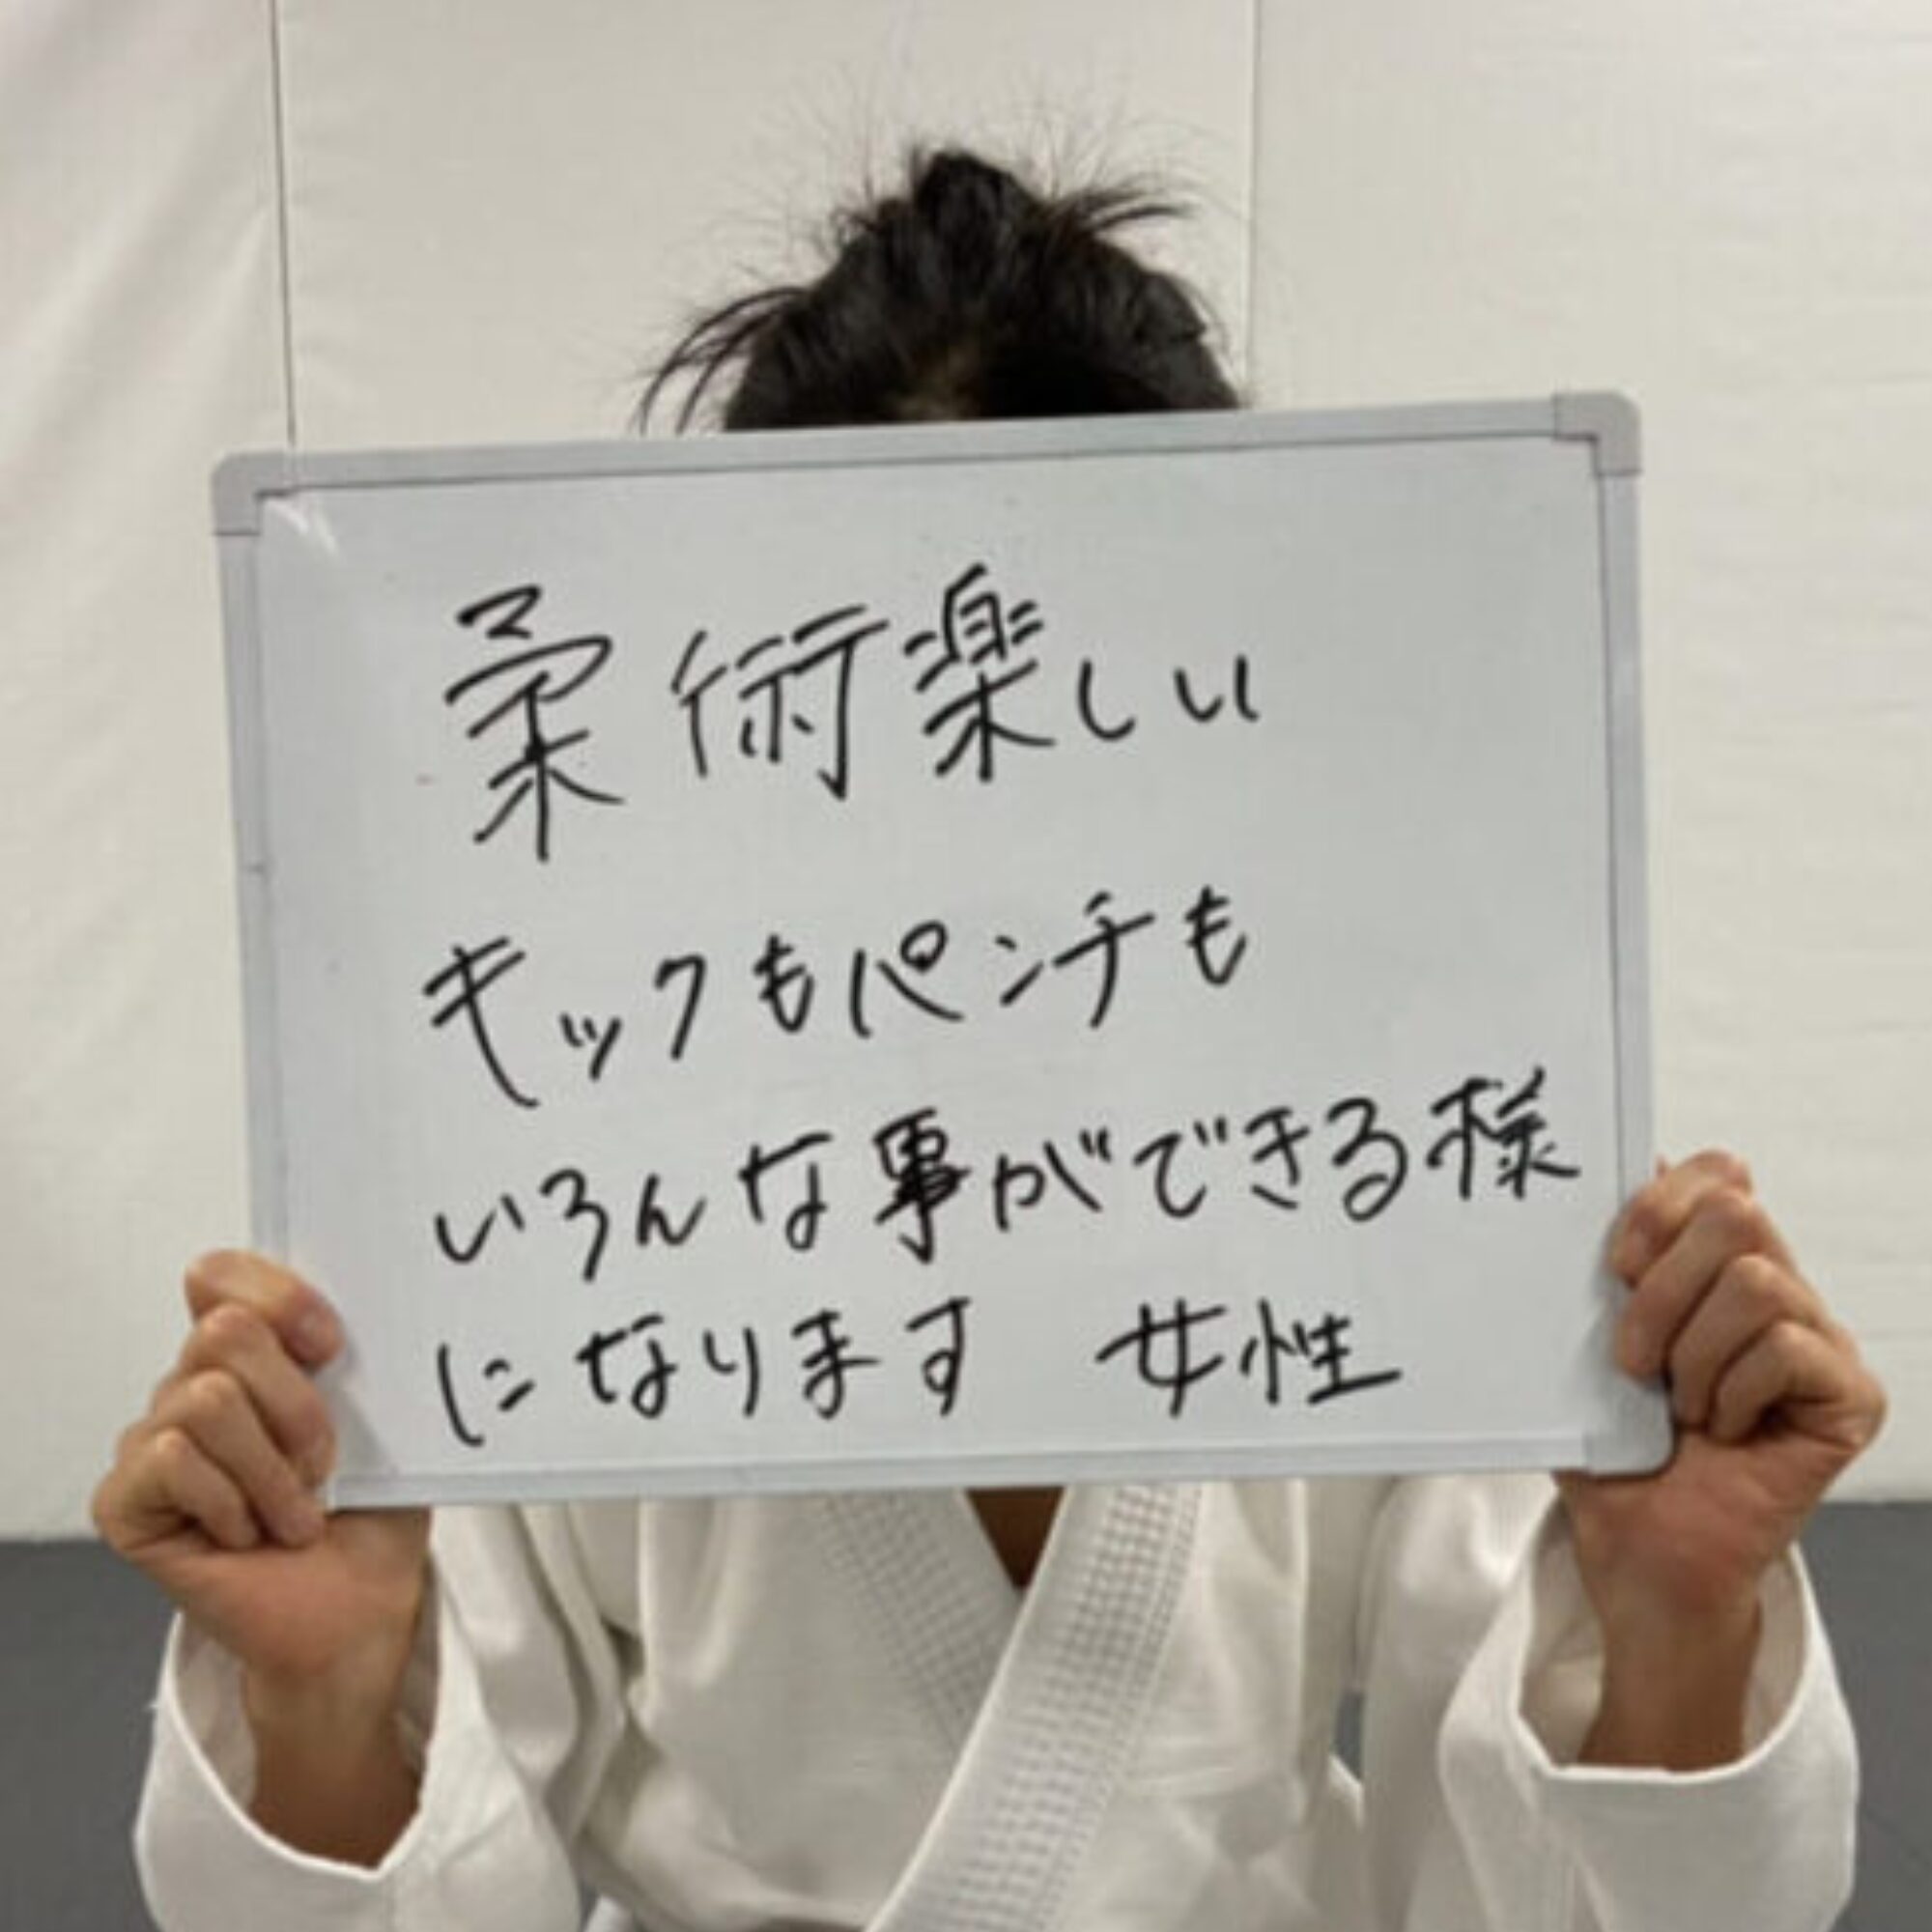 柔術楽しい
キックもパンチも
いろんな事ができる様
になります 女性